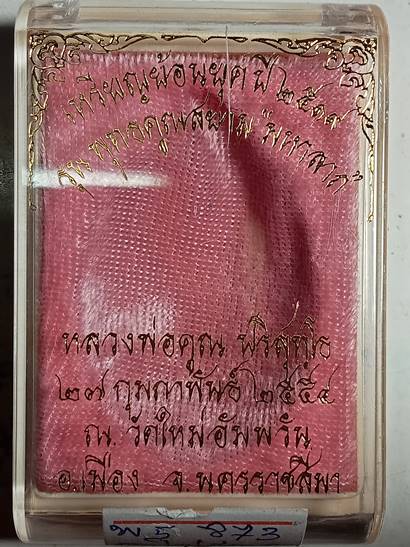 เหรียญย้อนยุค ปี ๒๕๑๗
รุ่น พุทธคูณสยาม "มหาลาภ"
หลวงพ่อคูณ ปริสุทฺโธ
๒๗ กุมภาพันธ์ ๒๕๕๔
ณ. วัดใหม่อัมพวัน
อ.เมือง จ.นครราชสีมา
873